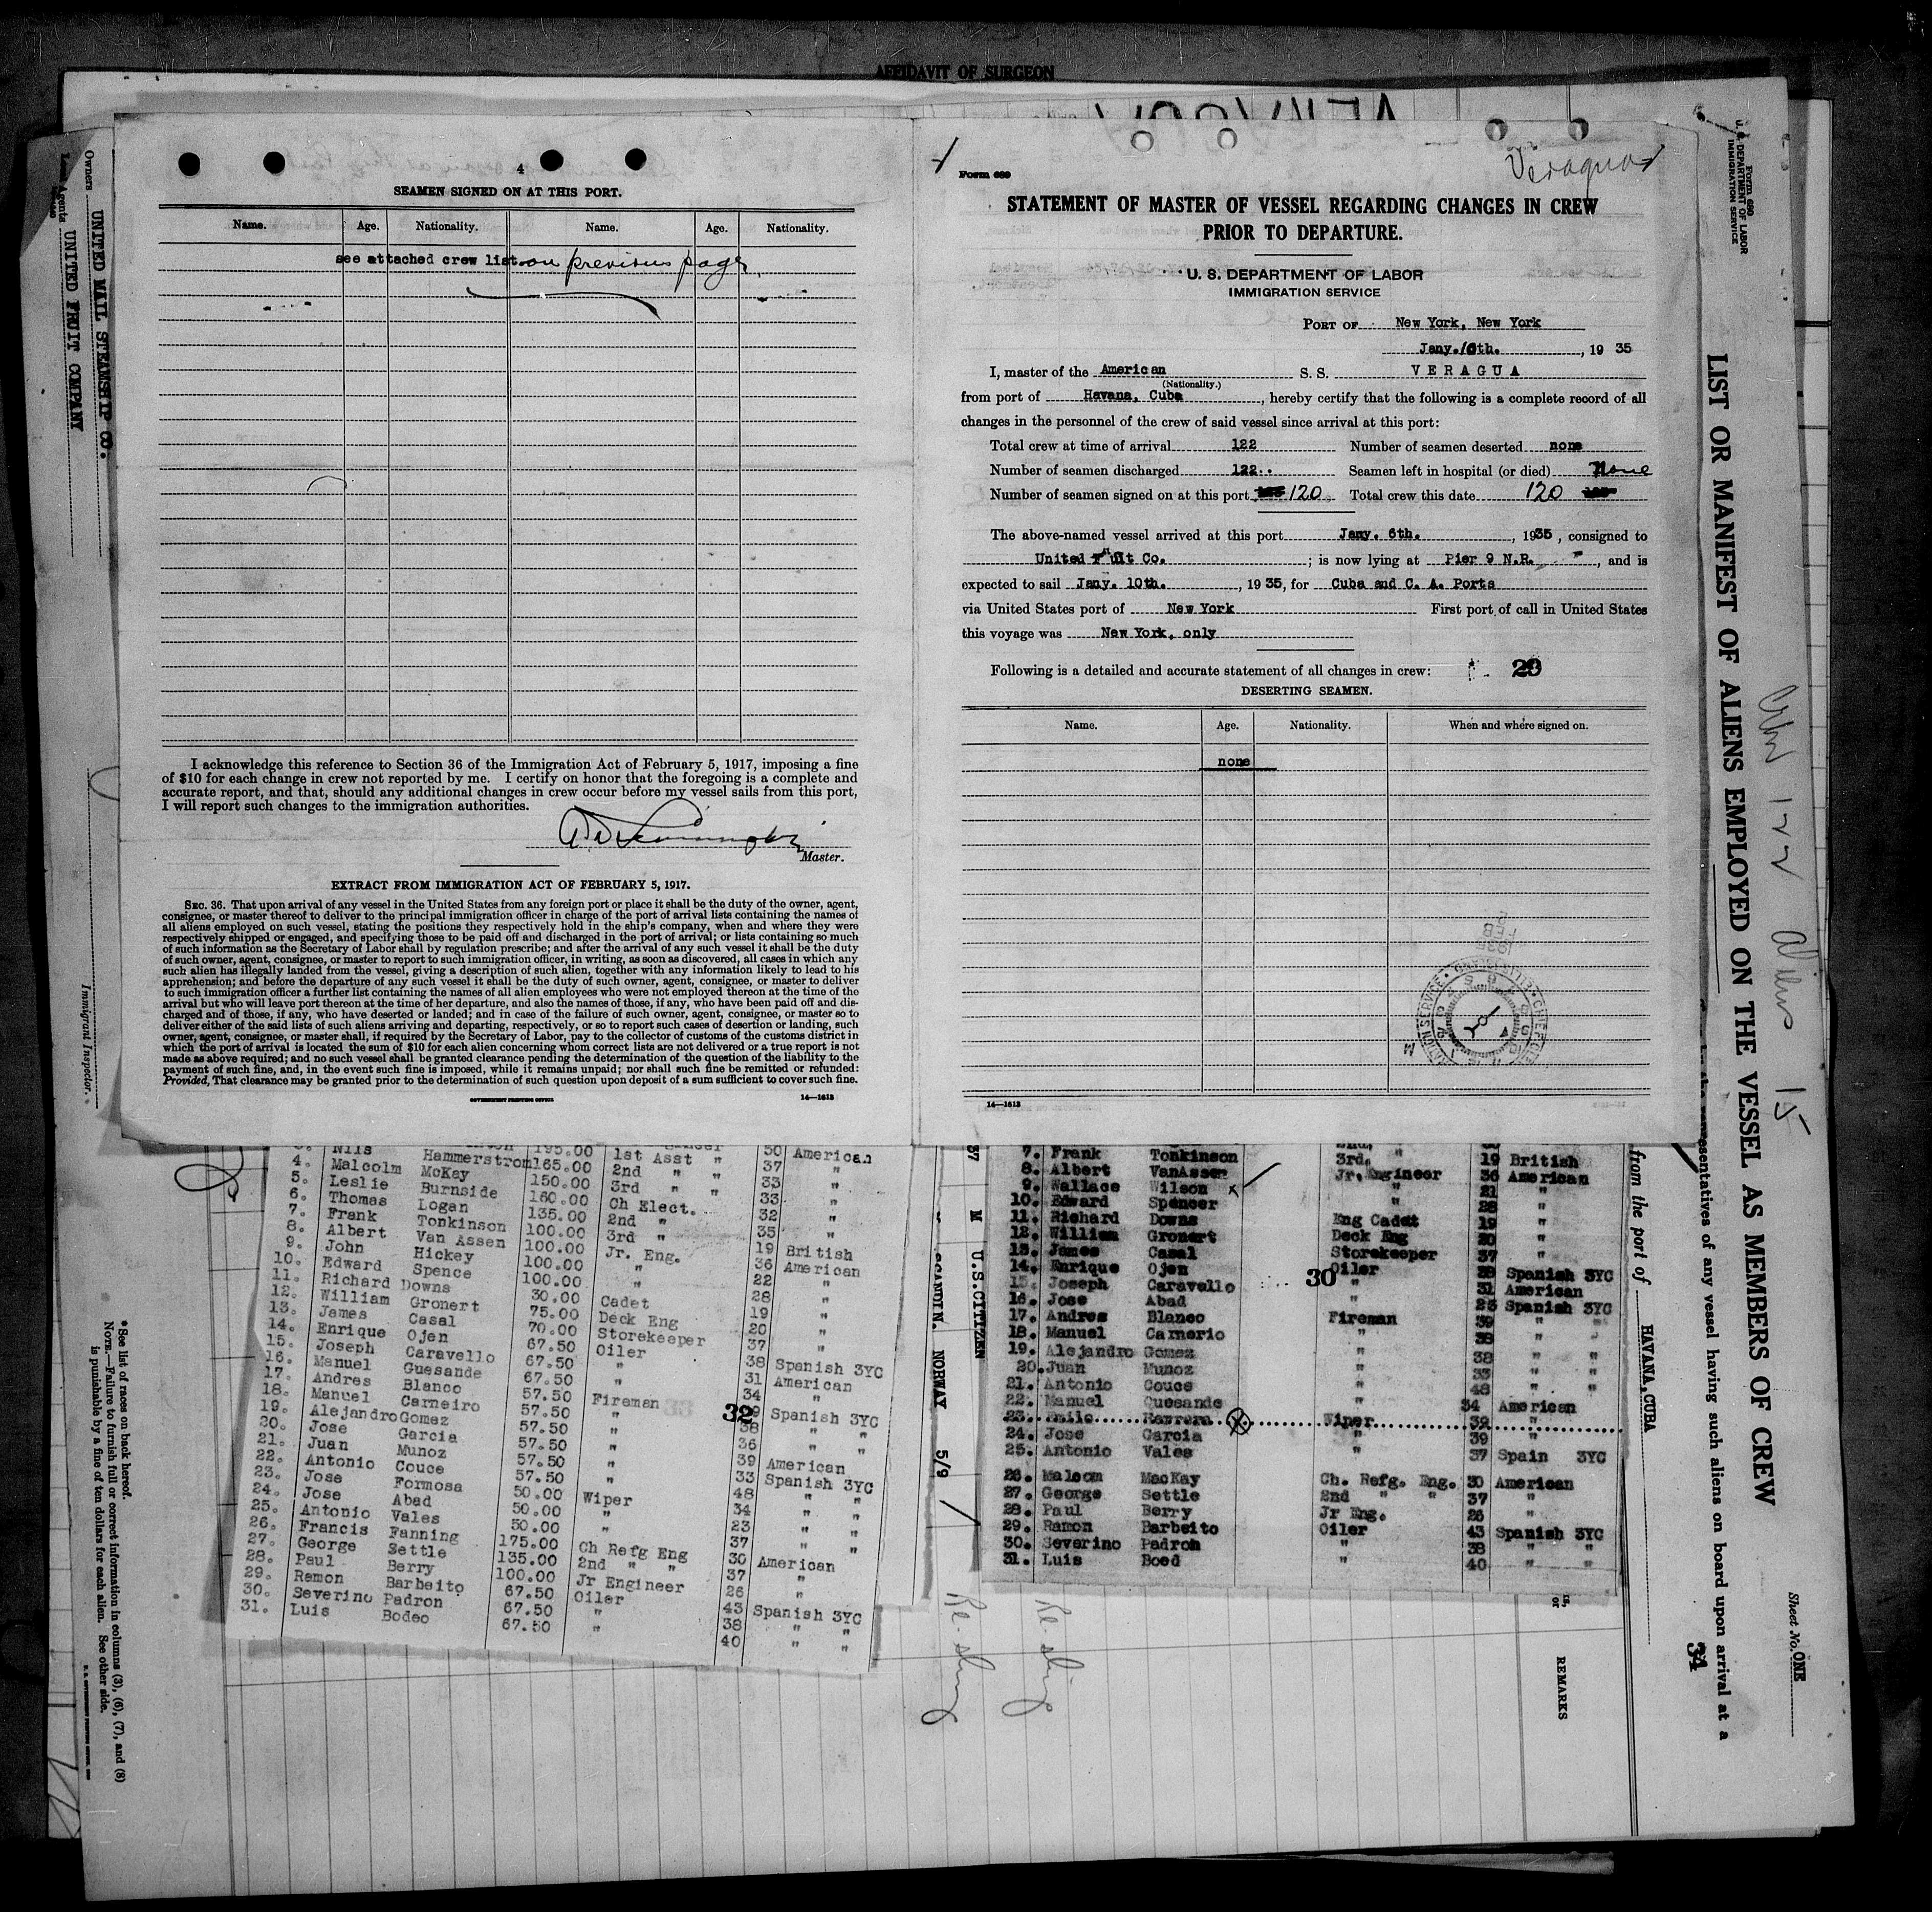 AFFIDAVIT OF SURGEON
4
SEAMEN SIGNED ON AT THIS PORT.
Name. Age. Nationality. Name. Age. Nationality.
see attached crew list on previous page.
I acknowledge this reference to Section 36 of the Immigration Act of February 5, 1917, imposing a fine
of $10 for each change in crew not reported by me. I certify on honor that the foregoing is a complete and
accurate report, and that, should any additional changes in crew occur before my vessel sails from this port,
I will report such changes to the immigration authorities.
Master.
EXTRACT FROM IMMIGRATION ACT OF FEBRUARY 5, 1917.
SEC. 36. That upon arrival of any vessel in the United States from any foreign port or place it shall be the duty of the owner, agent,
consignee, or master thereof to deliver to the principal immigration officer in charge of the port of arrival lists containing the names of
all aliens employed on such vessel, stating the positions they respectively hold in the ship's company, when and where they were
respectively shipped or engaged, and specifying those to be paid off and discharged in the port of arrival; or lists containing so much
of such information as the Secretary of Labor shall by regulation prescribe; and after the arrival of any such vessel it shall be the duty
of such owner, agent, consignee, or master to report to such immigration officer, in writing, as soon as discovered, all cases in which any
such alien has illegally landed from the vessel, giving a description of such alien, together with any information likely to lead to his
apprehension; and before the departure of any such vessel it shall be the duty of such owner, agent, consignee, or master to deliver
to such immigration officer a further list containing the names of all alien employees who were not employed thereon at the time of the
arrival but who will leave port thereon at the time of her departure, and also the names of those, if any, who have been paid off and dis-
charged and of those, if any, who have deserted or landed; and in case of the failure of such owner, agent, consignee, or master so to
deliver either of the said lists of such aliens arriving and departing, respectively, or so to report such cases of desertion or landing, such
owner, agent, consignee, or master shall, if required by the Secretary of Labor, pay to the collector of customs of the customs district in
which the port of arrival is located the sum of $10 for each alien concerning whom correct lists are not delivered or a true report is not
made as above required; and no such vessel shall be granted clearance pending the determination of the question of the liability to the
payment of such fine, and, in the event such fine is imposed, while it remains unpaid; nor shall such fine be remitted or refunded:
Provided, That clearance may be granted prior to the determination of such question upon deposit of a sum sufficient to cover such fine.
GOVERNMENT PRINTING OFFICE 14—1613
Veragua
Form 689
STATEMENT OF MASTER OF VESSEL REGARDING CHANGES IN CREW
PRIOR TO DEPARTURE.
U. S. DEPARTMENT OF LABOR
IMMIGRATION SERVICE
PORT OF New York, New York
Jany. 10th. , 19 35
I, master of the American S. S. VERAGUA
(Nationality.)
from port of Havana, Cuba , hereby certify that the following is a complete record of all
changes in the personnel of the crew of said vessel since arrival at this port:
Total crew at time of arrival 122 Number of seamen deserted none
Number of seamen discharged 122 Seamen left in hospital (or died) None
Number of seamen signed on at this port 120 Total crew this date 120
The above-named vessel arrived at this port Jany. 6th. , 1935 , consigned to
United Fruit Co. ; is now lying at Pier 9 N.R. , and is
expected to sail Jany. 10th. , 19 35, for Cuba and C. A. Ports
via United States port of New York First port of call in United States
this voyage was New York, only
Following is a detailed and accurate statement of all changes in crew:
29
DESERTING SEAMEN.
Name. Age. Nationality. When and where signed on.
none
14—1613
Nils 195.00 50 American
4. Malcolm Hammerstrom 165.00 1st Asst " 37 "
5. Leslie McKay 150.00 2nd " " 33 "
6. Thomas Burnside 160.00 3rd " " 33 "
7. Frank Logan 135.00 Ch Elect. 32 "
8. Albert Tonkinson 100.00 2nd " 35 "
9. John Van Assen 100.00 3rd " 19 British
10. Edward Hickey 100.00 Jr. Eng. 36 American
11. Richard Spence 100.00 " 22 "
12. William Downs 30.00 " 28 "
13. James Gronert 75.00 Cadet 19 "
14. Enrique Casal 70.00 Deck Eng 20 "
15. Joseph Ojen 67.50 Storekeeper 37 "
16. Manuel Caravello 67.50 Oiler 38 Spanish 3YC
17. Andres Guesande 67.50 " 31 American
18. Manuel Blanco 57.50 " 34 "
19. Alejandro Carneiro 57.50 Fireman 39 Spanish 3YC
20. Jose Gomez 57.50 " 38 " "
21. Juan Garcia 57.50 " 36 " "
22. Antonio Munoz 57.50 " 39 American
23. Jose Couce 57.50 " 33 Spanish 3YC
24. Jose Formosa 50.00 " 48 " "
25. Antonio Abad 50.00 Wiper 34 " "
26. Francis Vales 50.00 " 23 " "
27. George Fanning 175.00 " 37 " "
28. Paul Settle 135.00 Ch Refg Eng 30 American
29. Ramon Berry 100.00 2nd " " 37 "
30. Severino Barbeito 67.50 Jr Engineer 26 "
31. Luis Padron 67.50 Oiler 43 Spanish 3YC
Bodeo 67.50 " 38 " "
" 40 " "
32
7. Frank Tonkinson 2nd. "
8. Albert VanAssen 3rd. " 19 British
9. Wallace Wilson Jr. Engineer 36 American
10. Edward Spencer " 21 "
11. Richard Downs " 28 "
12. William Gronert Eng Cadet 19 "
13. James Casal Deck Eng 20 "
14. Enrique Ojen Storekeeper 37 "
15. Joseph Caravello Oiler 38 Spanish 3YC
16. Jose Abad " 31 American
17. Andres Blanco " 23 Spanish 3YC
18. Manuel Carnerio Fireman 39 " "
19. Alejandro Gomez " 38 " "
20. Juan Munoz " 38 " "
21. Antonio Couce " 33 " "
22. Manuel Quesande " 48 " "
34 American
23. Emilo Herrera Wiper 39 "
24. Jose Garcia " 39 "
25. Antonio Vales " 37 Spain 3YC
26. Malcom MacKay Ch. Refg. Eng. 30 American
27. George Settle 2nd " " 37 "
28. Paul Berry Jr Eng. 26 "
29. Ramon Barbeito Oiler 43 Spanish 3YC
30. Severino Padron " 38 " "
31. Luis Boed " 40 " "
30
Owners UNITED MAIL STEAMSHIP CO.
Local Agents UNITED FRUIT COMPANY
Immigrant Inspector.
*See list of races on back hereof.
NOTE.—Failure to furnish full or correct information in columns (3), (6), (7), and (8)
is punishable by a fine of ten dollars for each alien. See other side.
37 M U.S.CITIZEN
SCANDIN. NORWAY 5/9
Re-ship
Re-ship
REMARKS
Form 680
U. S. DEPARTMENT OF LABOR
IMMIGRATION SERVICE
LIST OR MANIFEST OF ALIENS EMPLOYED ON THE VESSEL AS MEMBERS OF CREW
representatives of any vessel having such aliens on board upon arrival at a
from the port of HAVANA, CUBA
Sheet No. ONE
34
122 aliens 15